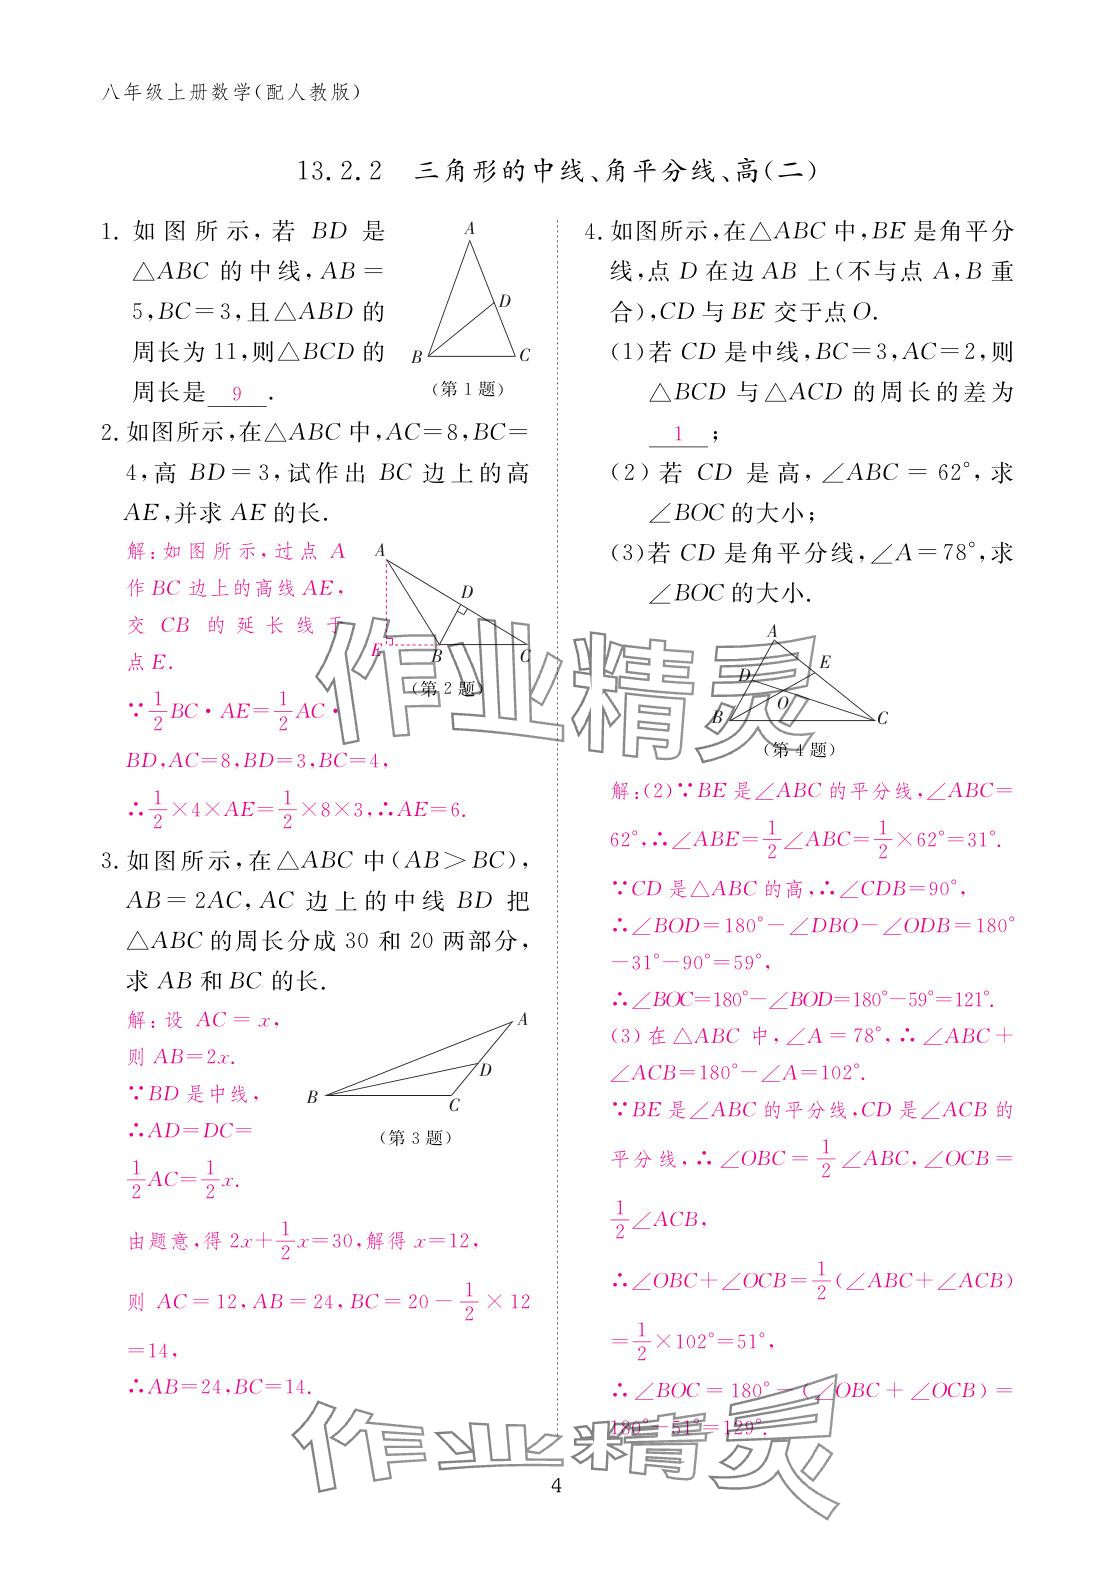 八年级上册数学(配人教版)
13.2.2 三角形的中线、角平分线、高(二)
1. 如图所示,若 BD 是
△ABC 的中线,AB=
5,BC=3,且△ABD 的
周长为 11,则△BCD 的
周长是 9 .
A
D
B
C
(第 1 题)
2. 如图所示,在△ABC 中,AC=8,BC=
4,高 BD=3,试作出 BC 边上的高
AE,并求 AE 的长.
解:如图所示,过点 A
作 BC 边上的高线 AE,
交 CB 的延长线于
点 E.
A
D
E
B
C
(第 2 题)
∵1/2BC·AE=1/2AC·
BD,AC=8,BD=3,BC=4,
∴1/2×4×AE=1/2×8×3,∴AE=6.
3. 如图所示,在△ABC 中(AB>BC),
AB=2AC,AC 边上的中线 BD 把
△ABC 的周长分成 30 和 20 两部分,
求 AB 和 BC 的长.
解:设 AC=x,
则 AB=2x.
∵BD 是中线,
∴AD=DC=
1/2AC=1/2x.
A
D
B
C
(第 3 题)
由题意,得 2x+1/2x=30,解得 x=12,
则 AC=12,AB=24,BC=20-1/2×12
=14,
∴AB=24,BC=14.
4. 如图所示,在△ABC 中,BE 是角平分
线,点 D 在边 AB 上(不与点 A,B 重
合),CD 与 BE 交于点 O.
(1)若 CD 是中线,BC=3,AC=2,则
△BCD 与△ACD 的周长的差为
1 ;
(2)若 CD 是高,∠ABC=62°,求
∠BOC 的大小;
(3)若 CD 是角平分线,∠A=78°,求
∠BOC 的大小.
A
E
D
O
B
C
(第 4 题)
解:(2)∵BE 是∠ABC 的平分线,∠ABC=
62°,∴∠ABE=1/2∠ABC=1/2×62°=31°.
∵CD 是△ABC 的高,∴∠CDB=90°,
∴∠BOD=180°-∠DBO-∠ODB=180°
-31°-90°=59°,
∴∠BOC=180°-∠BOD=180°-59°=121°.
(3)在△ABC 中,∠A=78°,∴∠ABC+
∠ACB=180°-∠A=102°.
∵BE 是∠ABC 的平分线,CD 是∠ACB 的
平分线,∴∠OBC=1/2∠ABC,∠OCB=
1/2∠ACB,
∴∠OBC+∠OCB=1/2(∠ABC+∠ACB)
=1/2×102°=51°,
∴∠BOC=180°-(∠OBC+∠OCB)=
180°-51°=129°.
作业精灵
作业精灵
4